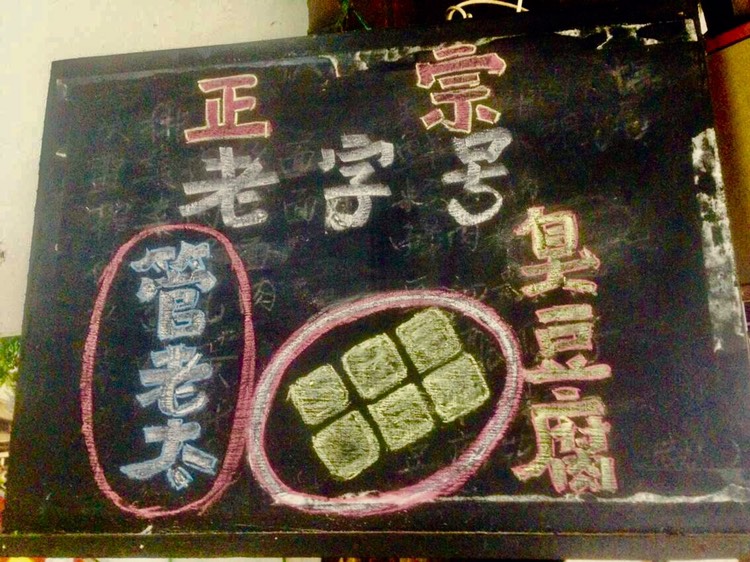 正宗
老字号
管老太
臭豆腐